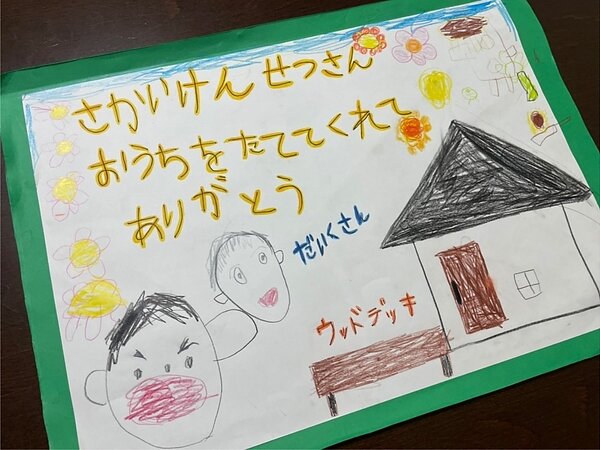 さかいけんせつさん
おうちをたててくれて
ありがとう
だいくさん
ウッドデッキ